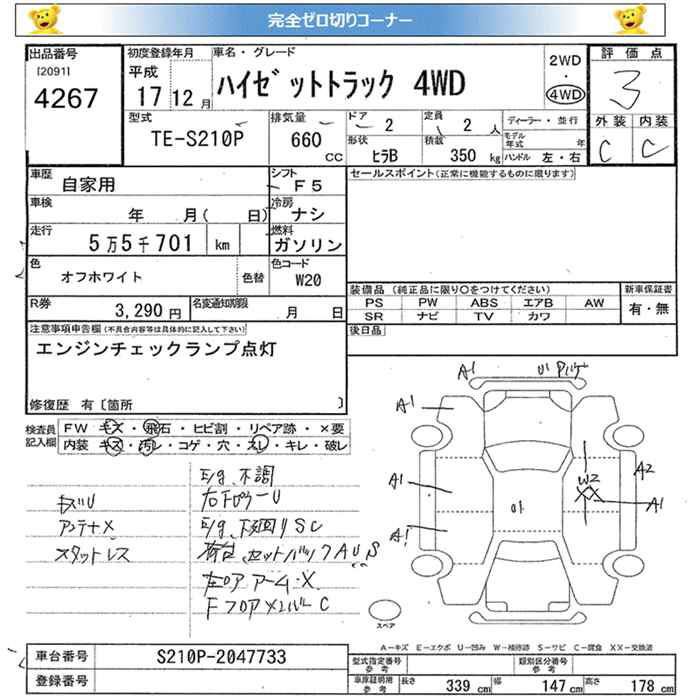 完全ゼロ切りコーナー
出品番号 初度登録年月 車名・グレード 評価点
[2091] 平成 ハイゼットトラック 4WD 2WD・4WD 3
4267 17 12 月
型式 排気量 ドア 2 定員 2 人 ディーラー・並行 外装 内装
TE-S210P 660 CC 形状 ヒラB 積載 350 kg モデル年式 年 C C
ハンドル 左・右
車歴 自家用 シフト F5 セールスポイント(正常に機能するものに限ります)
車検 年 月( 日) 冷房 ナシ
走行 5万5千701 km 燃料 ガソリン
色 オフホワイト 色替 色コード W20
装備品 (純正品に限り○をつけてください) 新車保証書
R券 3,290 円 名変通知期限 月 日 PS PW ABS エアB AW 有・無
SR ナビ TV カワ
注意事項申告欄(不具合内容等は具体的に記入して下さい) 後日品
エンジンチェックランプ点灯
修復歴 有〔箇所 〕
検査員記入欄 FW キズ・飛石・ヒビ割・リペア跡・×要
内装 キズ・汚レ・コゲ・穴・スレ・キレ・破レ
A1 U1
A1
A1 W2 A2
XX A1
A1 U1
E/g 不調
キズU
アンテナ×
スタットレス
E/g 下廻りSC
荷台、セットバックAUS
左ロアアーム×
FフロアメンバーC
スペア
A-キズ E-エクボ U-凹み W-補修跡 S-サビ C-腐食 XX-交換済
車台番号 S210P-2047733 型式指定番号 参考 類別区分番号 参考
登録番号 車庫証明用 参考 長さ 339 cm 幅 147 cm 高さ 178 cm